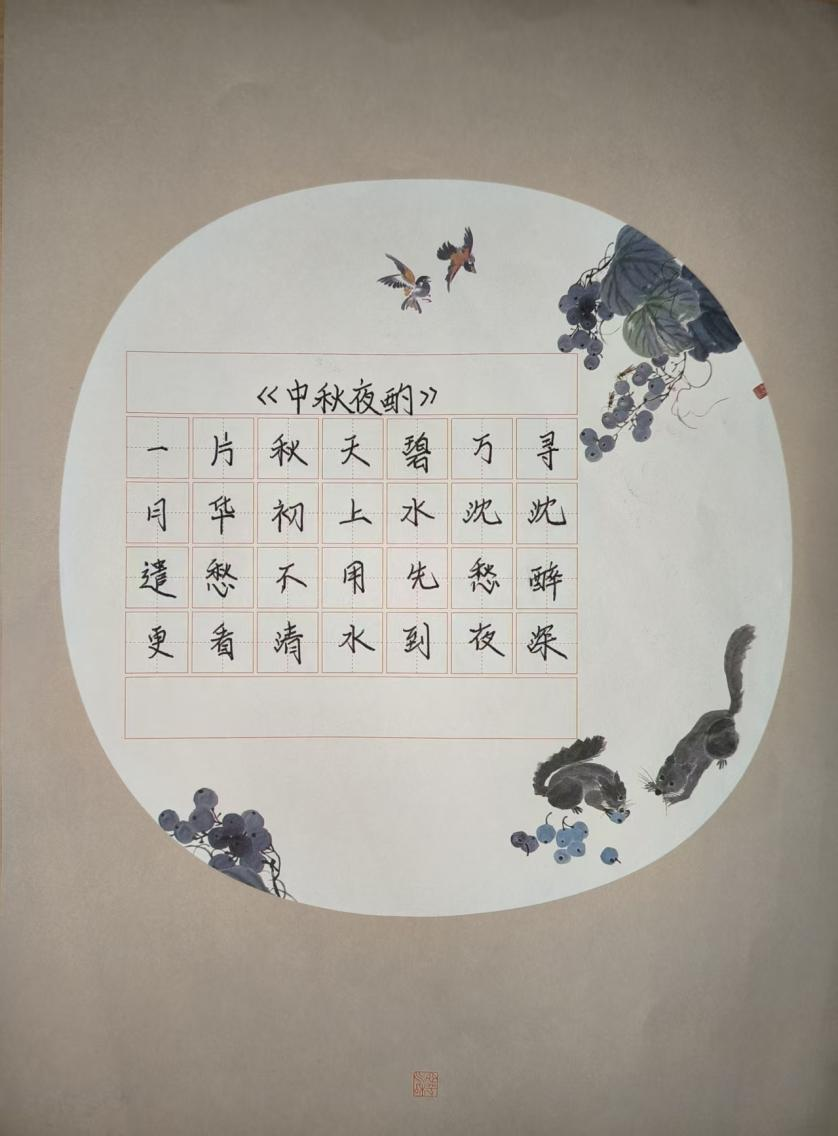 《中秋夜酌》
一片秋天碧万寻
月华初上水沈沈
遣愁不用先愁醉
更看清水到夜深